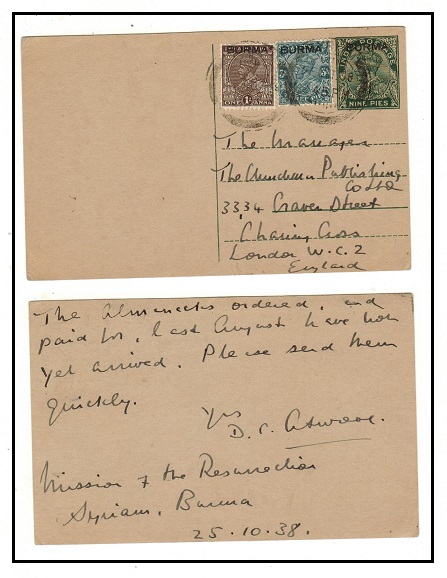 BURMA BURMA BURMA
INDIA POSTAGE
ONE ANNA NINE PIES
The Manager
The Publishing
Co Ltd
33,34 Craven Street
Charing Cross
London W.C.2
England
The Almanacks ordered, and
paid for, last August have not
yet arrived. Please send them
quickly.
Yrs
D. C. Atwool.
Mission of the Resurrection
Syriam, Burma
25.10.38.